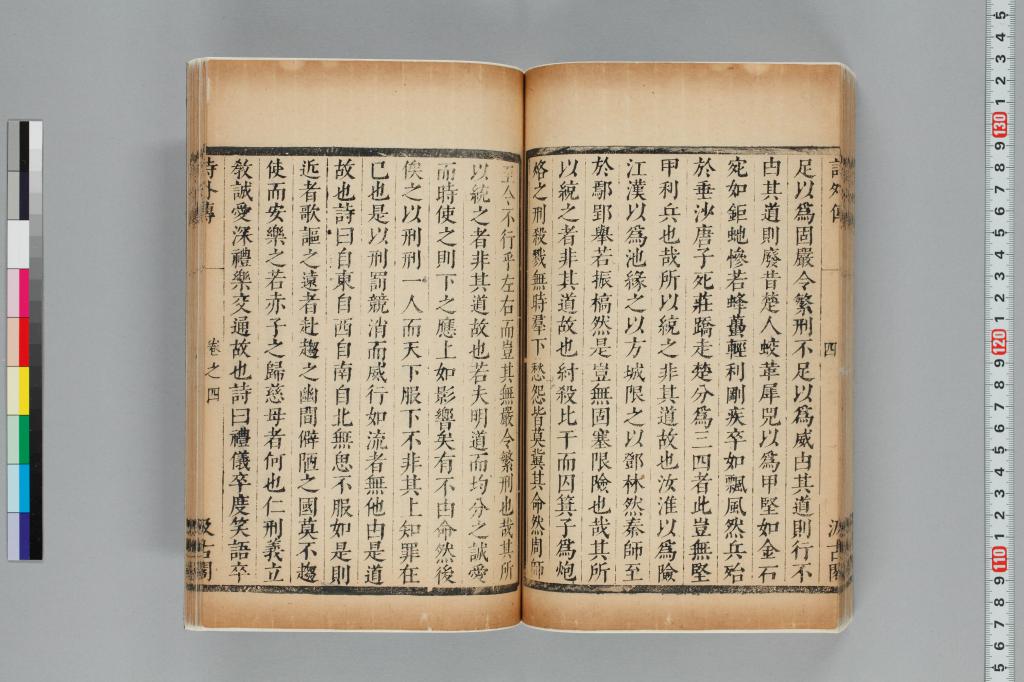 詩外傳
四
汲古閣
足以爲固嚴令繁刑不足以爲威由其道則行不
由其道則廢昔楚人蛟革犀兕以爲甲堅如金石
宛如鉅虵慘若蜂蠆輕利剛疾卒如飄風然兵殆
於垂沙唐子死莊蹻走楚分爲三四者此豈無堅
甲利兵也哉所以統之非其道故也汝淮以爲險
江漢以爲池緣之以方城限之以鄧林然秦師至
於鄢郢舉若振槁然是豈無固塞限險也哉其所
以統之者非其道故也紂殺比干而囚箕子爲炮
烙之刑殺戮無時羣下愁怨皆莫冀其命然周師
至令不行乎左右而豈其無嚴令繁刑也哉其所
以統之者非其道故也若夫明道而均分之誠愛
而時使之則下之應上如影響矣有不由命然後
俟之以刑刑一人而天下服下不非其上知罪在
已也是以刑罰競消而威行如流者無他由是道
故也詩曰自東自西自南自北無思不服如是則
近者歌謳之遠者赴趨之幽間僻陋之國莫不趨
使而安樂之若赤子之歸慈母者何也仁刑義立
教誠愛深禮樂交通故也詩曰禮儀卒度笑語卒
詩外傳
卷之四
汲古閣